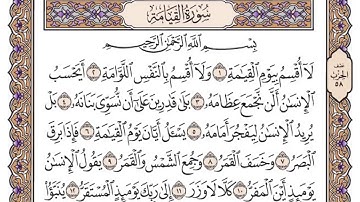 سُورَةُ القِيَامَةِ
بِسْمِ اللَّهِ الرَّحْمَٰنِ الرَّحِيمِ
لَا أُقْسِمُ بِيَوْمِ الْقِيَامَةِ ١ وَلَا أُقْسِمُ بِالنَّفْسِ اللَّوَّامَةِ ٢ أَيَحْسَبُ
الْإِنسَانُ أَلَّن نَّجْمَعَ عِظَامَهُ ٣ بَلَىٰ قَادِرِينَ عَلَىٰ أَن نُّسَوِّيَ بَنَانَهُ ٤ بَلْ
يُرِيدُ الْإِنسَانُ لِيَفْجُرَ أَمَامَهُ ٥ يَسْأَلُ أَيَّانَ يَوْمُ الْقِيَامَةِ ٦ فَإِذَا بَرِقَ
الْبَصَرُ ٧ وَخَسَفَ الْقَمَرُ ٨ وَجُمِعَ الشَّمْسُ وَالْقَمَرُ ٩ يَقُولُ الْإِنسَانُ
يَوْمَئِذٍ أَيْنَ الْمَفَرُّ ١٠ كَلَّا لَا وَزَرَ ١١ إِلَىٰ رَبِّكَ يَوْمَئِذٍ الْمُسْتَقَرُّ ١٢ يُنَبَّؤُا
نصف
الحزب
٥٨